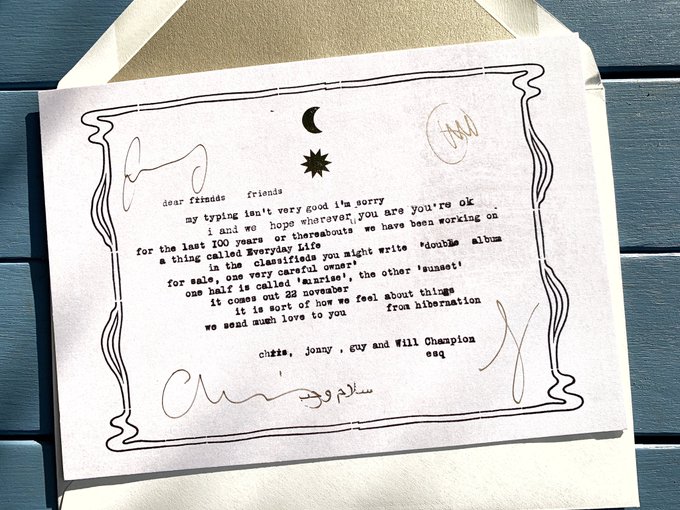 dear friends friends
my typing isn't very good i'm sorry
i and we hope wherever you are you're ok
for the last 100 years or thereabouts we have been working on
a thing called Everyday Life
in the classifieds you might write 'double album
for sale, one very careful owner'
one half is called 'sunrise', the other 'sunset'
it comes out 22 november
it is sort of how we feel about things
we send much love to you from hibernation
chris, jonny , guy and Will Champion
esq
سلام و